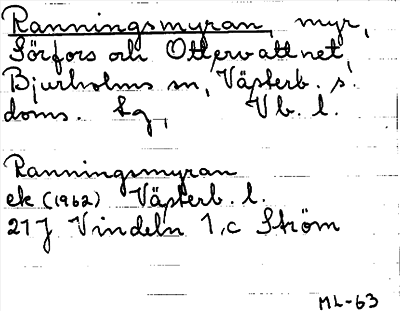 Ranningsmyran, myr,
Sörfors och Ottervattnet,
Bjurholms sn, Västerb. s.
doms. Lg, Vb. l.
Ranningsmyran
ek (1962) Västerb. l.
21J Vindeln 1,c Ström
ML-63